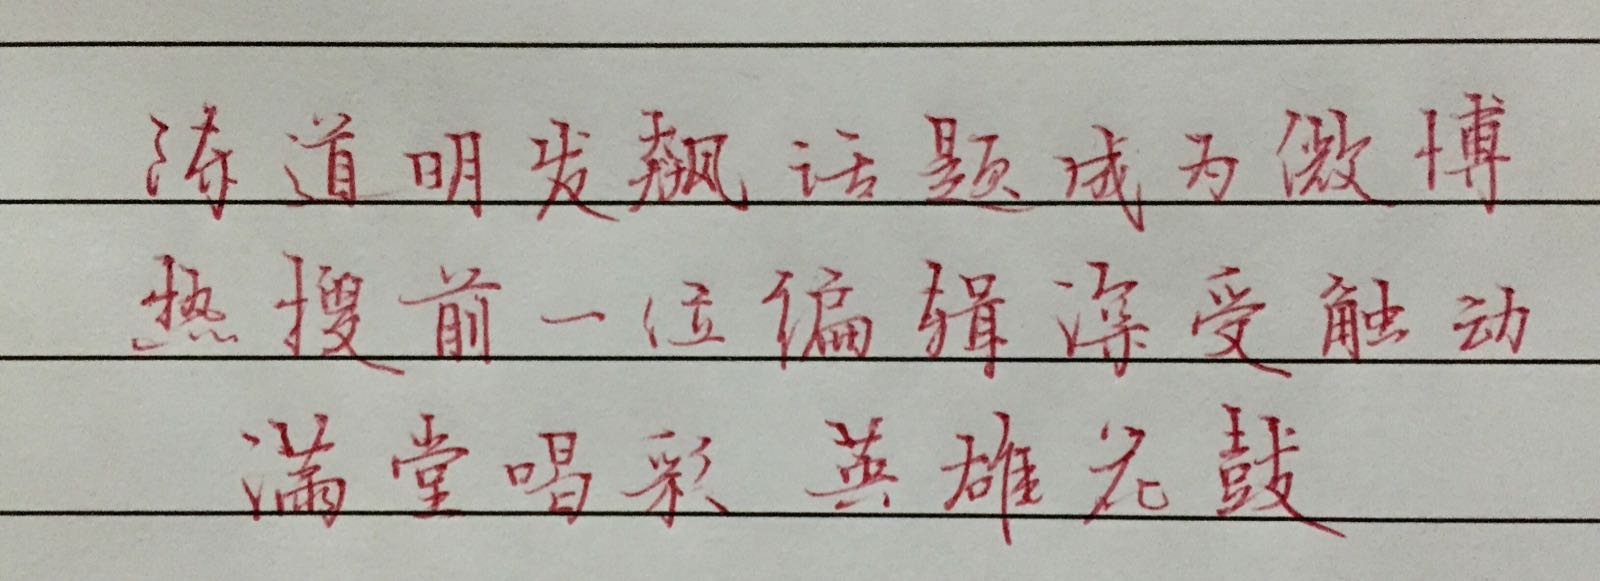 涛道明发飙话题成为微博
热搜前一位编辑深受触动
满堂喝彩 英雄花鼓